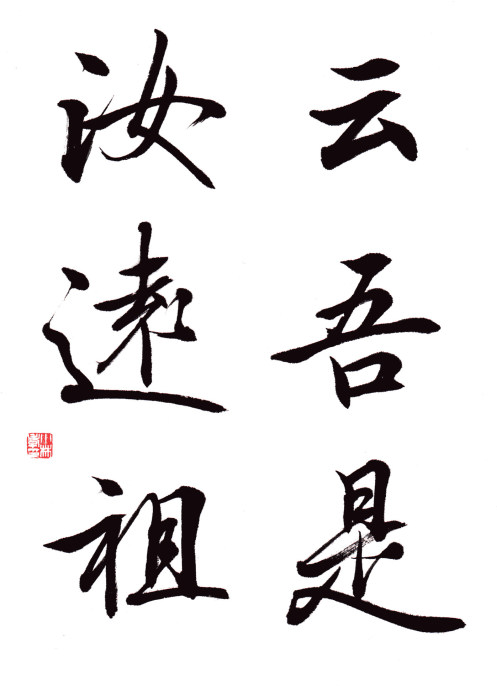 云吾是
汝遠祖